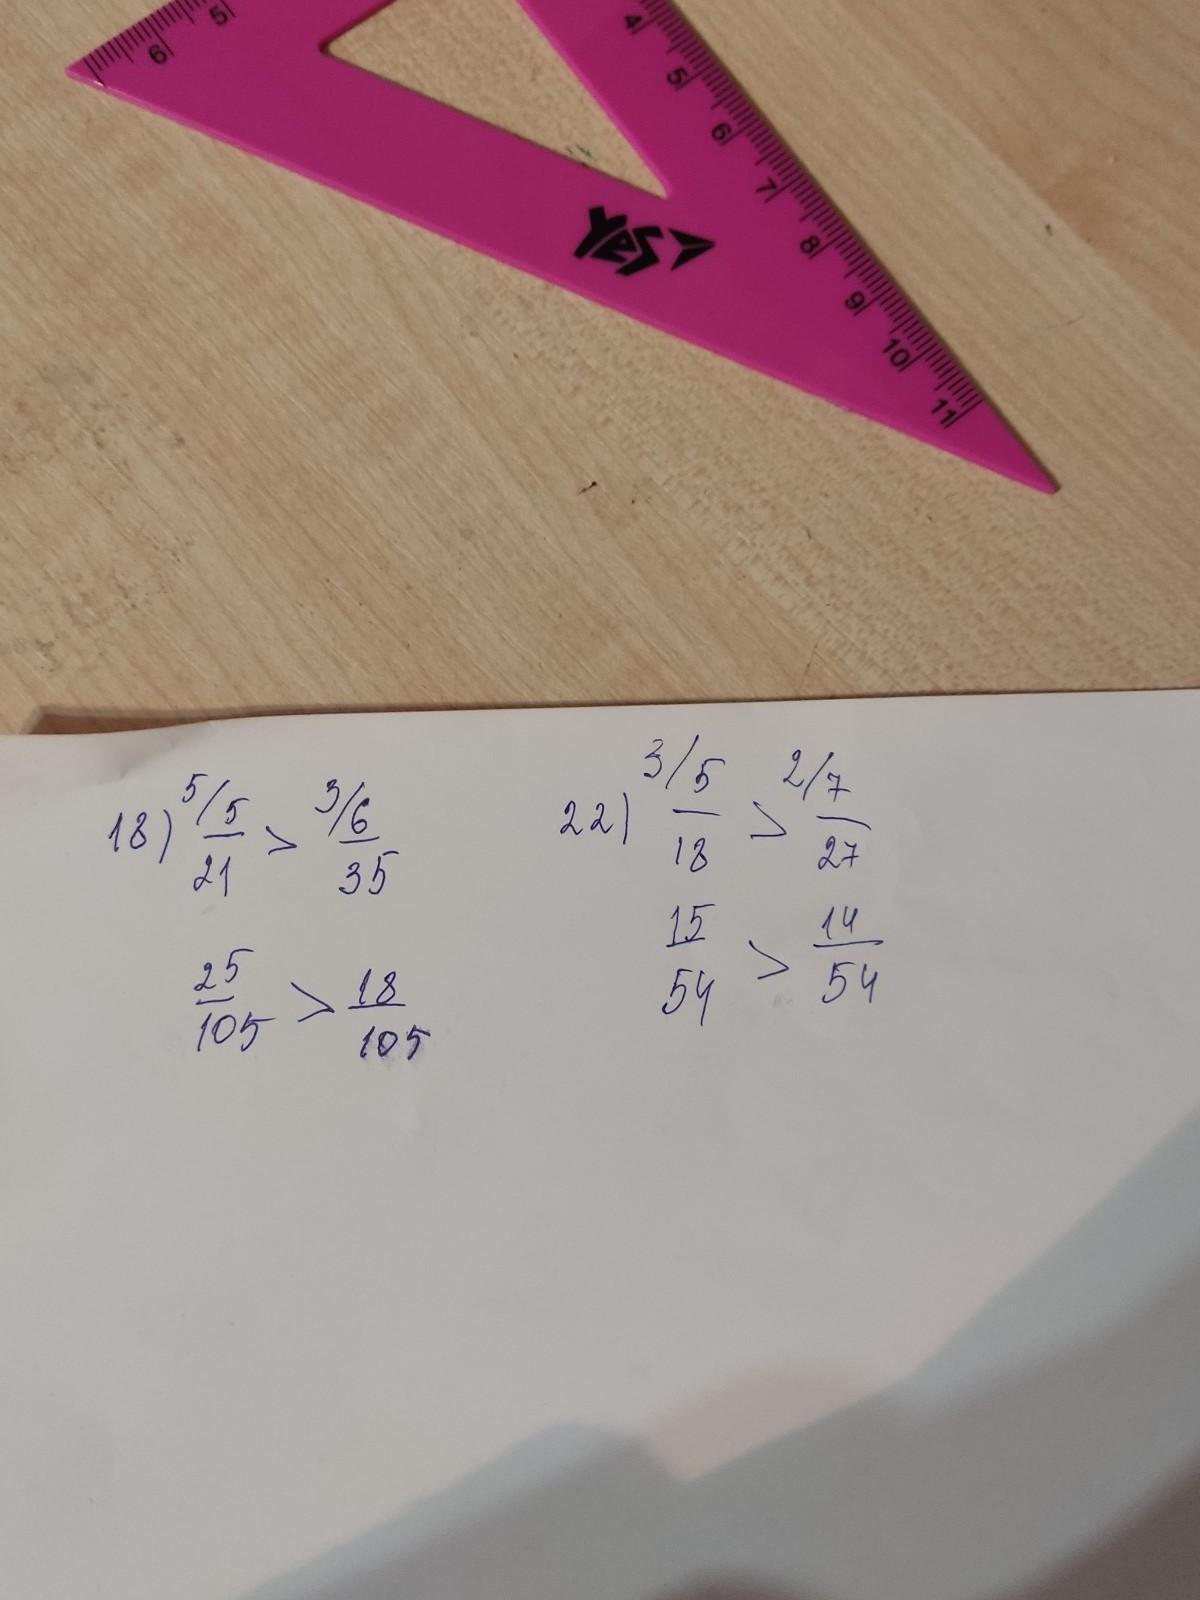 5 6
4 5 6 7 8 9 10 11
18) 5/5/21 > 3/6/35
25/105 > 18/105
22) 3/5/18 > 2/7/27
15/54 > 14/54